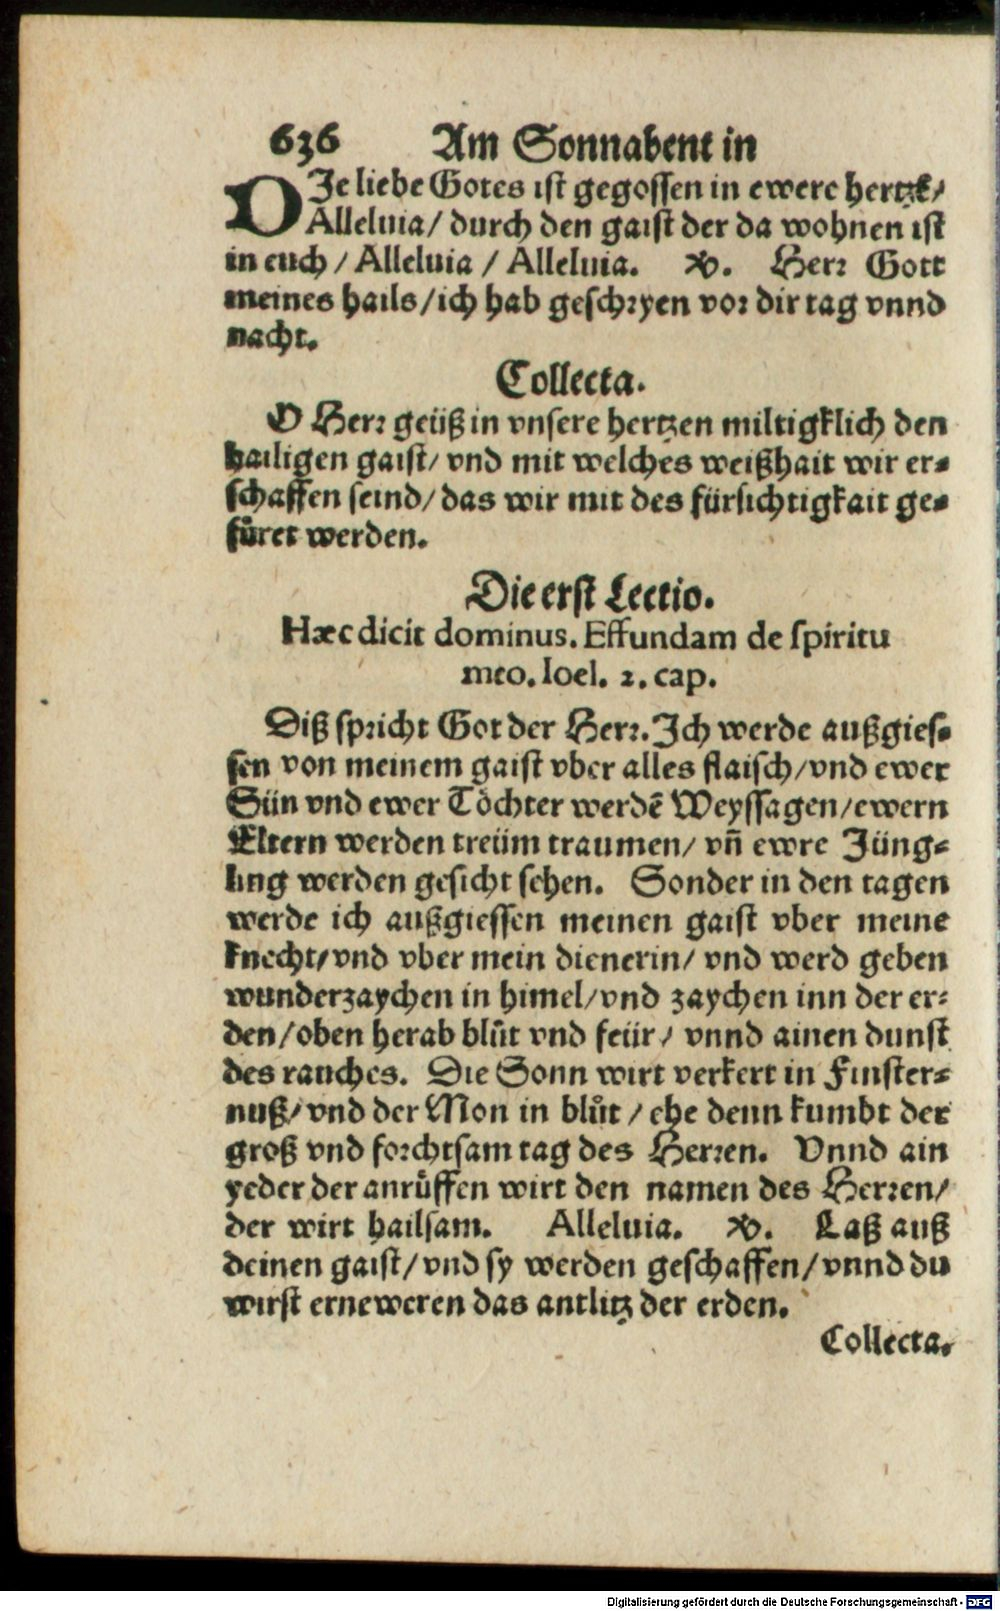 636 Am Sonnabent in
DJe liebe Gotes ist gegossen in ewere hertzē/
Alleluia/ durch den gaist der da wohnen ist
in euch / Alleluia / Alleluia. ℣. Herr Gott
meines hails/ich hab geschryen vor dir tag vnnd
nacht.
Collecta.
O Herr geüß in vnsere hertzen miltigklich den
hailigen gaist/ vnd mit welches weißhait wir er⸗
schaffen seind/das wir mit des fürsichtigkait ge⸗
fuͤret werden.
Die erst Lectio.
Hæc dicit dominus. Effundam de spiritu
meo. Ioel. 2. cap.
Diß spricht Got der Herr. Jch werde außgies⸗
sen von meinem gaist vber alles flaisch/vnd ewer
Sün vnd ewer Toͤchter werdē Weyssagen/ewern
Eltern werden treüm traumen/ vn̄ ewre Jüng⸗
ling werden gesicht sehen. Sonder in den tagen
werde ich außgiessen meinen gaist vber meine
knecht/vnd vber mein dienerin/ vnd werd geben
wunderzaychen in himel/vnd zaychen inn der er⸗
den/oben herab bluͦt vnd feür/ vnnd ainen dunst
des rauches. Die Sonn wirt verkert in Finster⸗
nuß/vnd der Mon in bluͦt / ehe denn kumbt der
groß vnd forchtsam tag des Herren. Vnnd ain
yeder der anruͤffen wirt den namen des Herren/
der wirt hailsam. Alleluia. ℣. Laß auß
deinen gaist/vnd sy werden geschaffen/vnnd du
wirst erneweren das antlitz der erden.
Collecta.
Digitalisierung gefördert durch die Deutsche Forschungsgemeinschaft - DFG